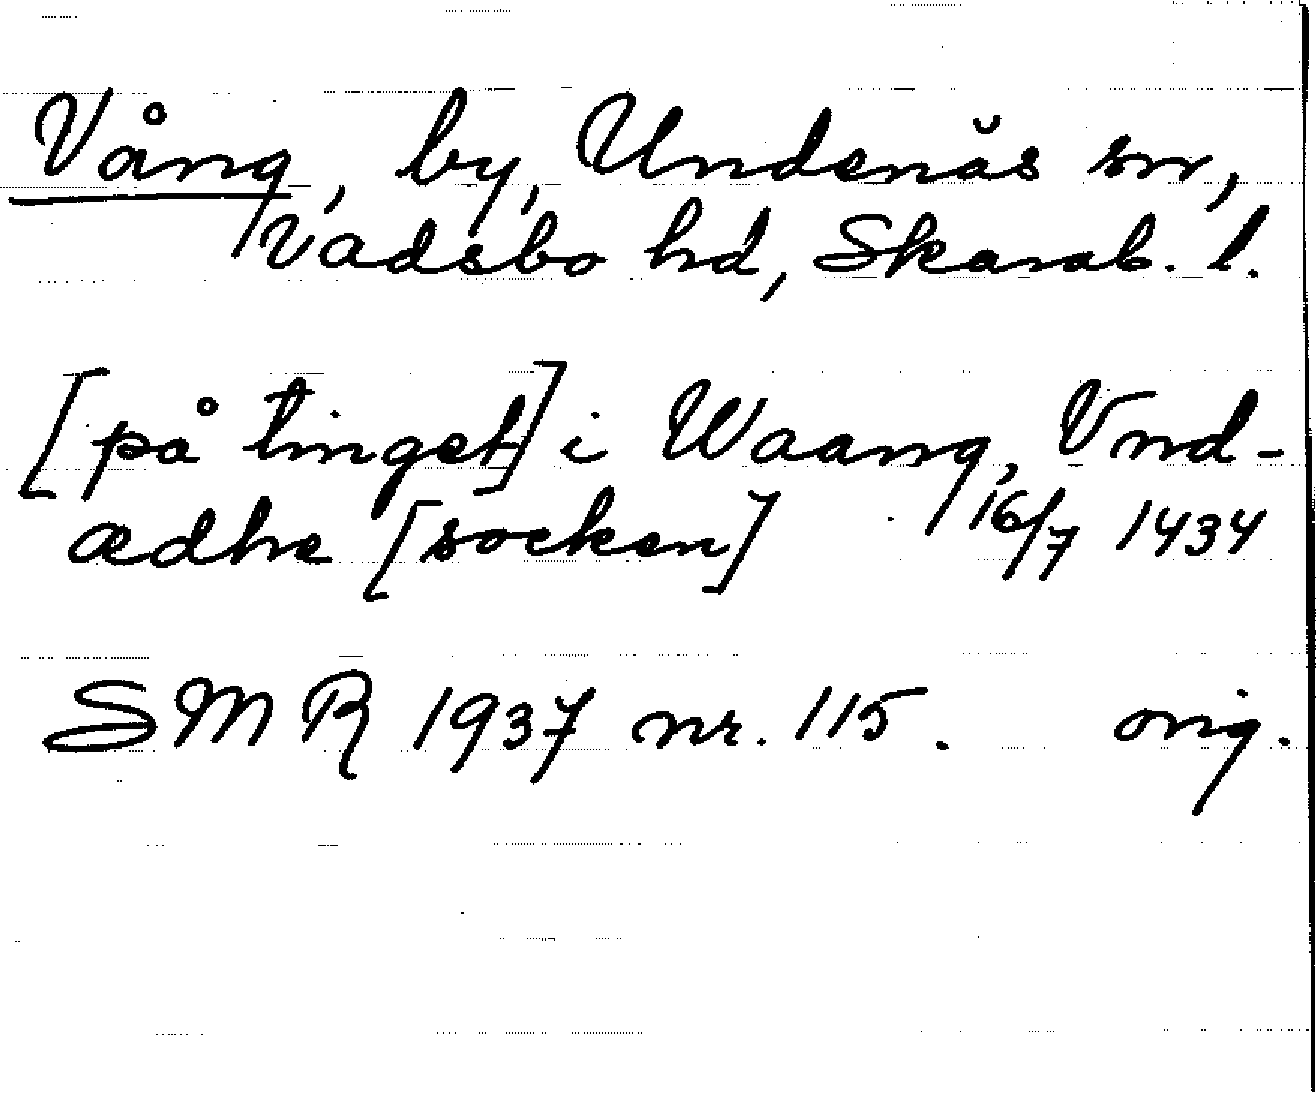 Vång, by, Undenäs sn,
Vadsbo hd, Skarab. l.
[på tinget] i Waang, Vnd-
ædhe [socken] 16/7 1434
SMR 1937 nr. 115. orig.